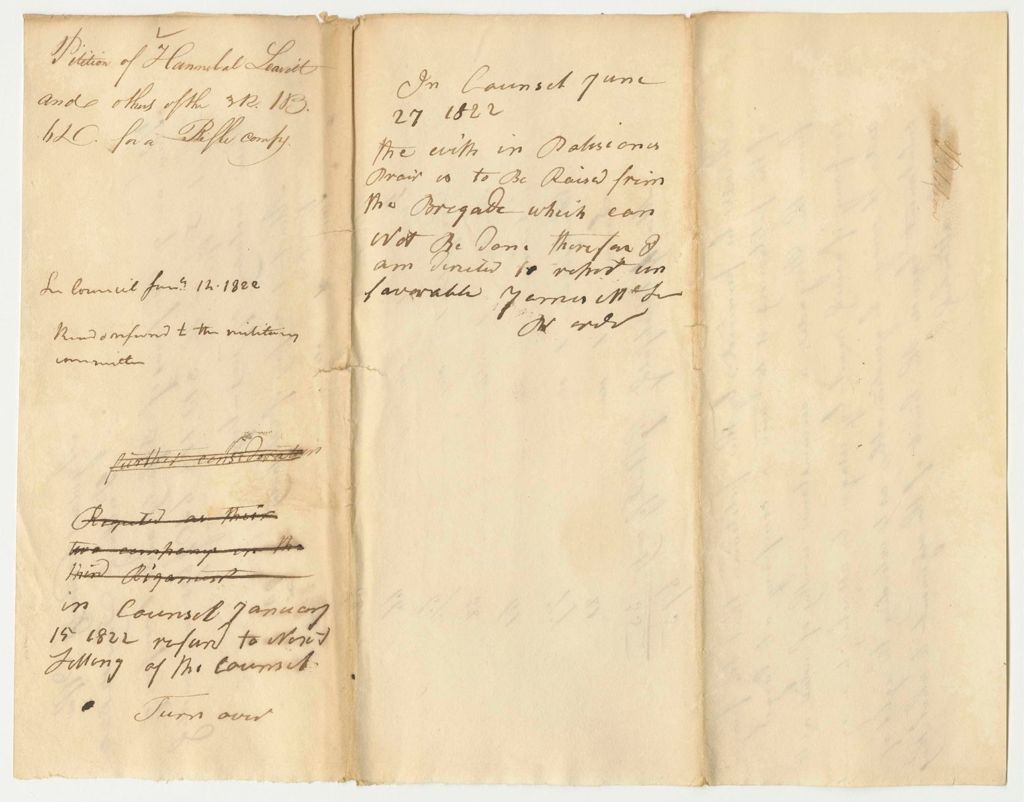 Petition of Hannibal Leavitt
and others of the 3R. 1B.
6D. for a Rifle compy.
In Council Jany. 14. 1822
Read & referred to the military
committee
further consideration
Rejected as their
two company in the
third Rigament
in Counsel January
15 1822 refurd to Next
Setting of the Counsel
Turn over
In Counsel June
27 1822
the with in Patisioners
Prair is to Be Raised frim
the Bregade which can
Not Be Done therefore I
am directed to report un
favorable James